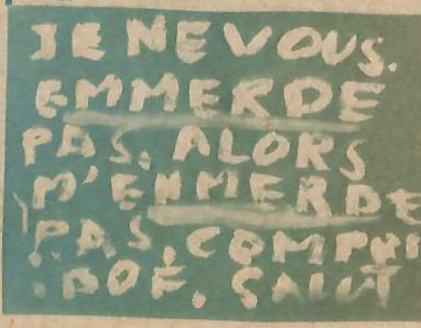 JE NE VOUS.
EMMERDE
PAS. ALORS
M'EMMERDE
PAS. COMPRI
POÉ. SALUT